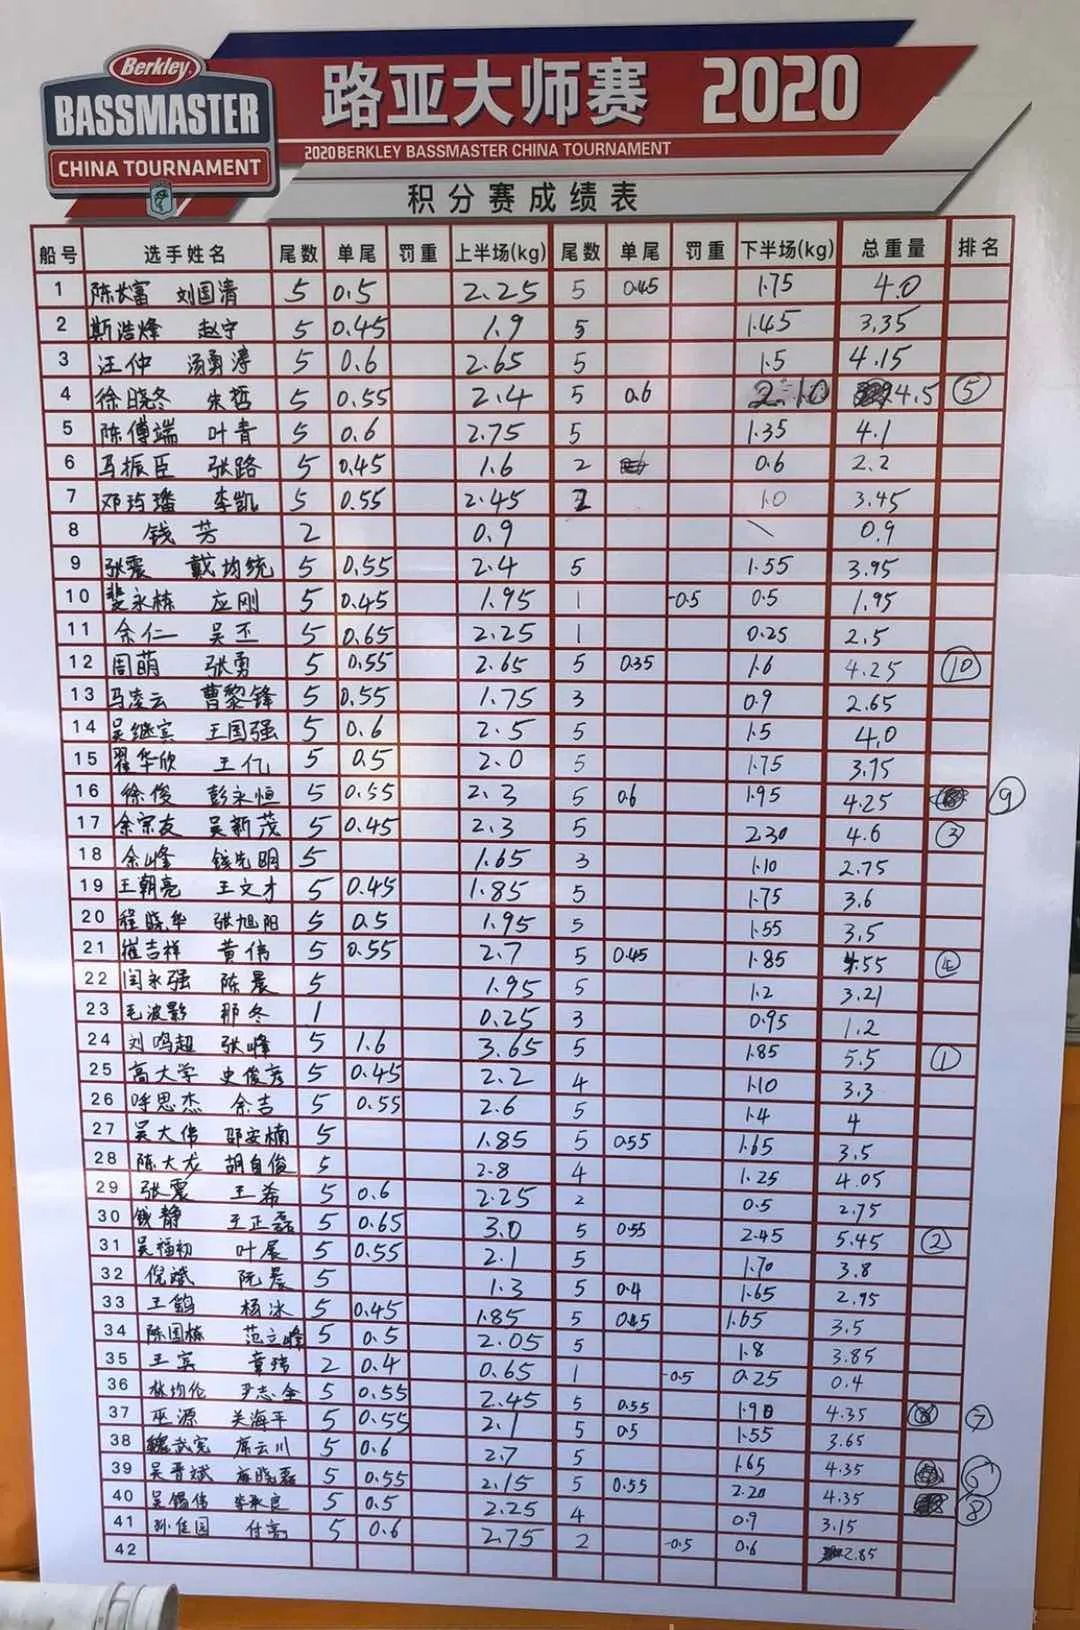 Berkley
BASSMASTER
CHINA TOURNAMENT
路亚大师赛 2020
2020 BERKLEY BASSMASTER CHINA TOURNAMENT
积分赛成绩表
船号 选手姓名 尾数 单尾 罚重 上半场(kg) 尾数 单尾 罚重 下半场(kg) 总重量 排名
1 陈长富 刘国清 5 0.5 2.25 5 0.45 1.75 4.0
2 斯浩烽 赵宁 5 0.45 1.9 5 1.45 3.35
3 汪仲 汤勇涛 5 0.6 2.65 5 1.5 4.15
4 徐晓冬 朱哲 5 0.55 2.4 5 0.6 2.10 4.5 ⑤
5 陈傅端 叶青 5 0.6 2.75 5 1.35 4.1
6 马振臣 张路 5 0.45 1.6 2 0.6 2.2
7 李凯 5 0.55 2.45 2 1.0 3.45
8 钱芳 2 0.9 \ 0.9
9 张震 戴均统 5 0.55 2.4 5 1.55 3.95
10 应刚 5 0.45 1.95 1 -0.5 0.5 1.95
11 余仁 吴丕 5 0.65 2.25 1 0.25 2.5
12 周萌 张勇 5 0.55 2.65 5 0.35 1.6 4.25 ⑩
13 马凌云 曹黎锋 5 0.55 1.75 3 0.9 2.65
14 吴继宾 王国强 5 0.6 2.5 5 1.5 4.0
15 翟华欣 王亿 5 0.5 2.0 5 1.75 3.75
16 徐俊 彭永恒 5 0.55 2.3 5 0.6 1.95 4.25 ⑨
17 余宗友 吴新茂 5 0.45 2.3 5 2.30 4.6 ③
18 余峰 钱先明 5 1.65 3 1.10 2.75
19 王朝亮 王文才 5 0.45 1.85 5 1.75 3.6
20 程晓华 张旭阳 5 0.5 1.95 5 1.55 3.5
21 崔吉祥 黄伟 5 0.55 2.7 5 0.45 1.85 4.55 ④
22 闫永强 陈晨 5 1.95 5 1.2 3.21
23 毛波影 那冬 1 0.25 3 0.95 1.2
24 刘鸣超 张峰 5 1.6 3.65 5 1.85 5.5 ①
25 高大学 史俊彦 5 0.45 2.2 4 1.10 3.3
26 呼思杰 余吉 5 0.55 2.6 5 1.4 4
27 吴大伟 邵安楠 5 1.85 5 0.55 1.65 3.5
28 陈大龙 胡自俊 5 2.8 4 1.25 4.05
29 张震 王希 5 0.6 2.25 2 0.5 2.75
30 钱静 王正磊 5 0.65 3.0 5 0.55 2.45 5.45 ②
31 吴福初 叶展 5 0.55 2.1 5 1.70 3.8
32 倪斌 阮晨 5 1.3 5 0.4 1.65 2.95
33 王鹤 杨冰 5 0.45 1.85 5 0.45 1.65 3.5
34 陈国栋 范立峰 5 0.5 2.05 5 1.8 3.85
35 王宾 章玮 2 0.4 0.65 1 -0.5 0.25 0.4
36 林均伦 尹志全 5 0.55 2.45 5 0.55 1.90 4.35 ⑦
37 巫源 关海平 5 0.55 2.1 5 0.5 1.55 3.65
38 魏武宪 席云川 5 0.6 2.7 5 1.65 4.35 ⑥
39 吴晋斌 5 0.55 2.15 5 0.55 2.20 4.35 ⑧
40 吴锡伟 李承良 5 0.5 2.25 4 0.9 3.15
41 孙佳园 付嵩 5 0.6 2.75 2 -0.5 0.6 2.85
42